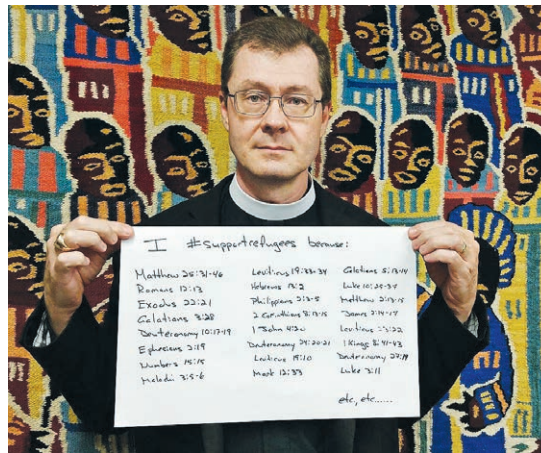 I #supportrefugees because:
Matthew 25:31-46
Romans 12:13
Exodus 22:21
Galatians 3:28
Deuteronomy 10:17-19
Ephesians 2:19
Numbers 15:15
Malachi 3:5-6
Leviticus 19:33-34
Hebrews 13:2
Philippians 2:3-5
2 Corinthians 8:13-15
1 John 4:20
Deuteronomy 24:20-21
Leviticus 19:10
Mark 12:33
Galatians 5:13-14
Luke 10:29-37
Matthew 2:13-15
James 2:14-17
Leviticus 23:22
1 Kings 8:41-43
Deuteronomy 27:19
Luke 3:11
etc, etc......